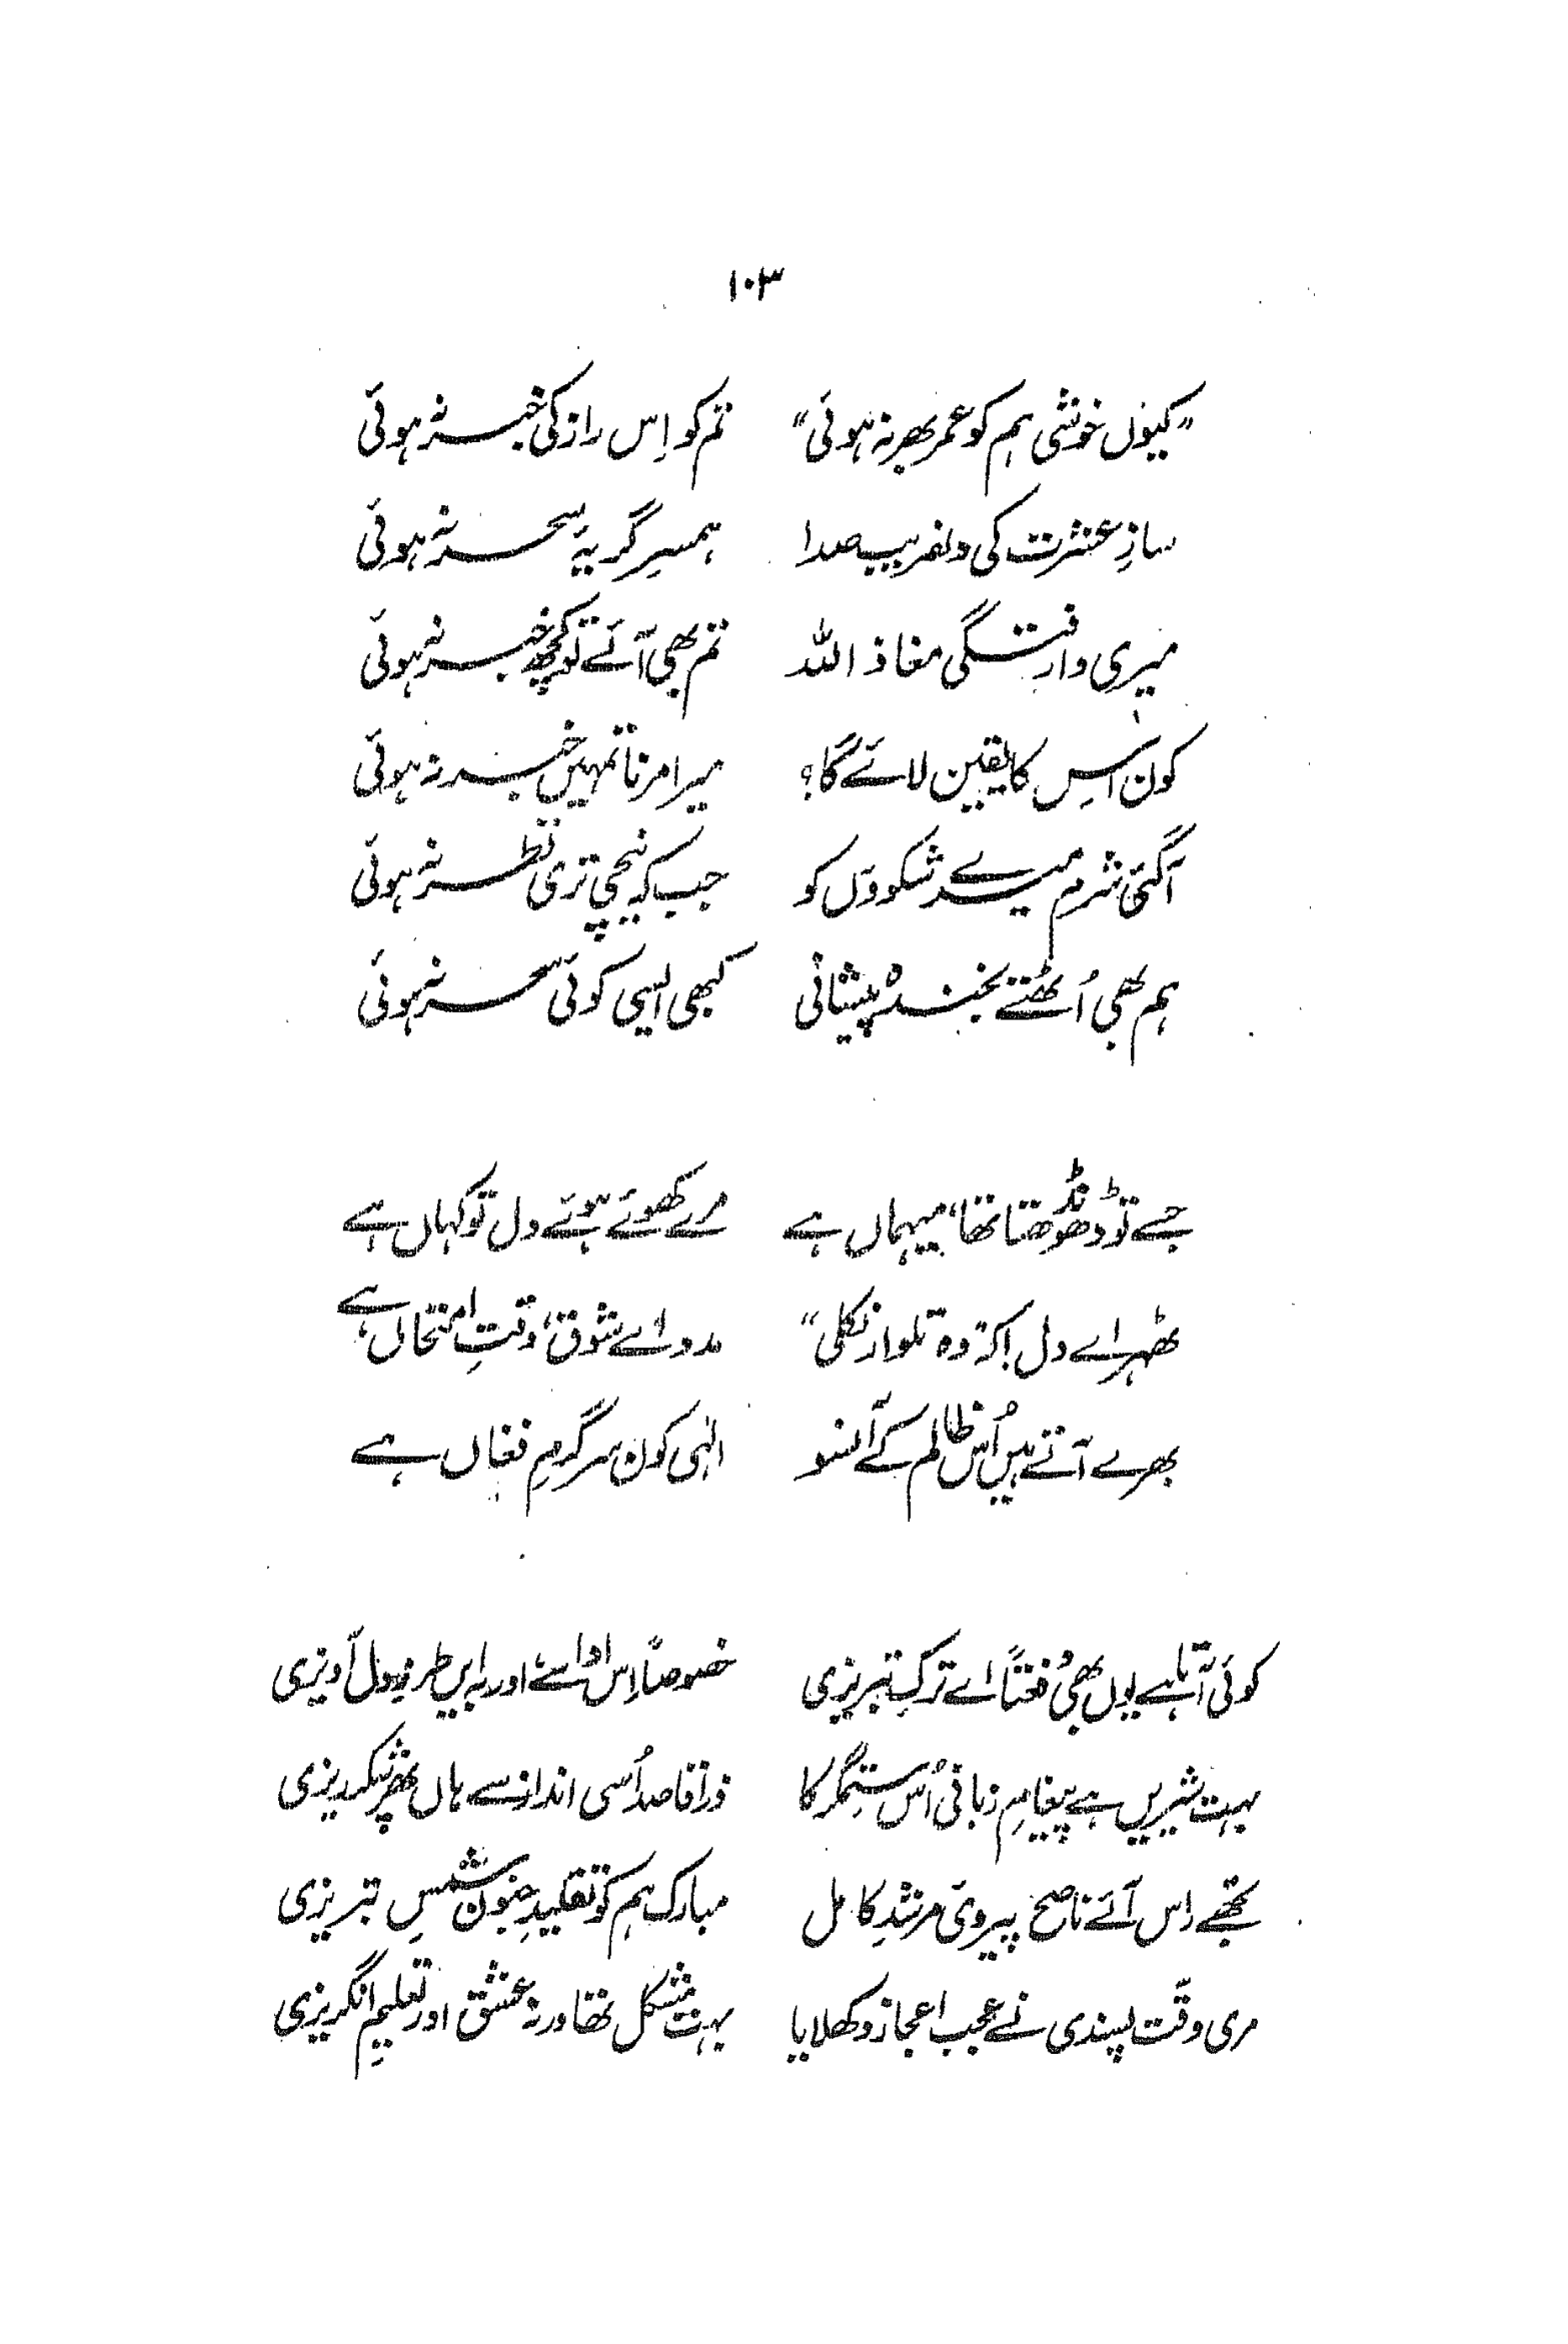 ۱۰۳
"کیوں خوشی ہم کو عمر بھر نہ ہوئی" تم کو اِس راز کی خبر نہ ہوئی
سازِ عشرت کی دلفریب صدا ہمسرِ گریۂ سحر نہ ہوئی
میری وارفتگی معاذ اللہ تم بھی آئے تو کچھ خبر نہ ہوئی
کون اس کا یقین لائے گا؟ میرا مرنا تمہیں خبر نہ ہوئی
آگئی شرم میرے شکووں کو جب کہ نیچی تری نظر نہ ہوئی
ہم بھی اُٹھتے بخندہ پیشانی کبھی ایسی کوئی سحر نہ ہوئی
جسے تو ڈھونڈھتا تھا، میہماں ہے مرے کھوئے ہوئے دل تو کہاں ہے
ٹھہر اے دل! کہ وہ تلوار نکلی" مدد اے شوق، وقتِ امتحاں ہے
بھرے آتے ہیں اُس ظالم کے آنسو الٰہی کون سرگرمِ فغاں ہے
کوئی آتا ہے یوں بھی دفعتاً اے ترکِ تبریزی خصوصاً اِس ادا سے، اور بہ ایں طرزِ دل آویزی
بہت شیریں ہے پیغامِ زبانی اُس ستمگر کا ذرا قاصد اُسی انداز سے ہاں پھر شکر ریزی
تجھے راس آئے ناصح پیرویِ مرشدِ کامل مبارک ہم کو تقلیدِ جنونِ شمسِ تبریزی
مری دقّت پسندی نے عجب اعجاز دکھلایا بہت مشکل تھا ورنہ عشق اور تعلیمِ انگریزی